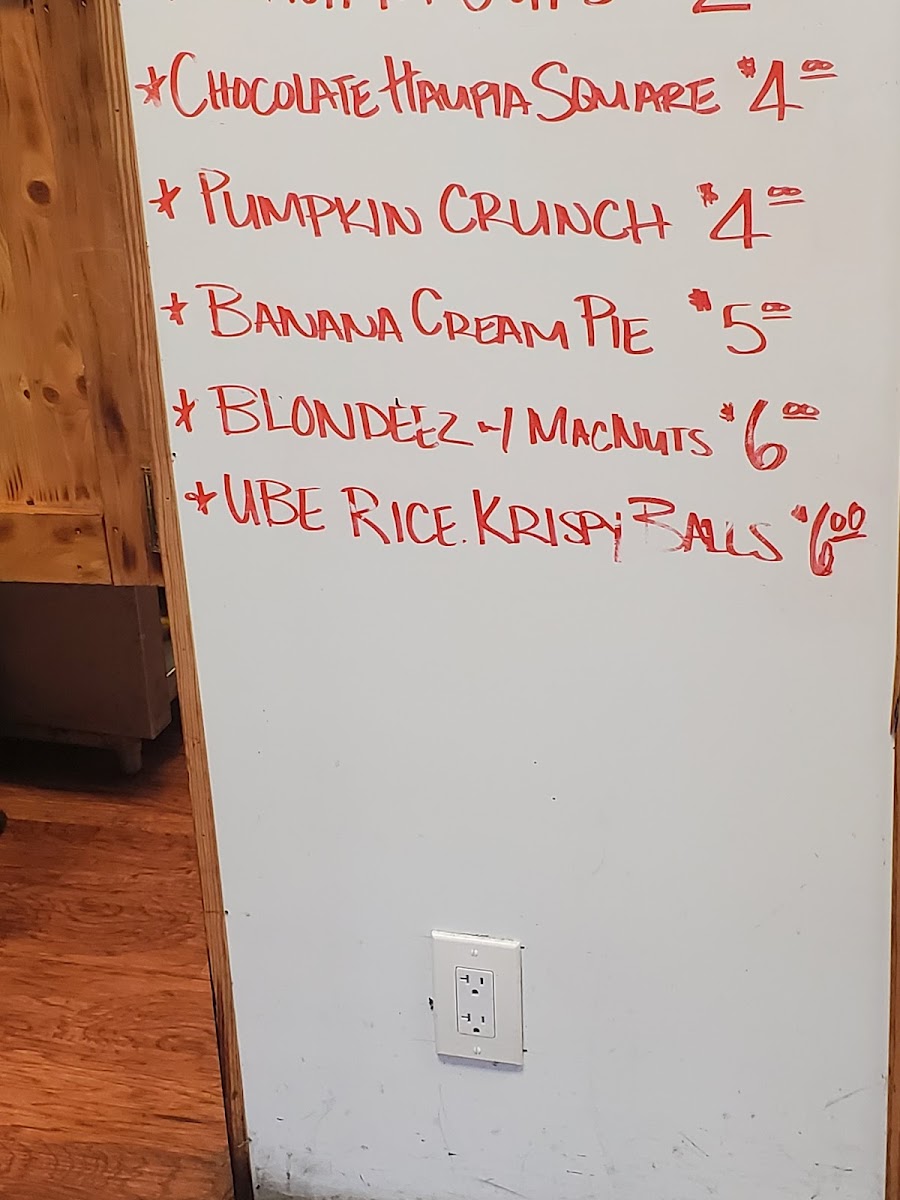 * CHOCOLATE HAUPIA SQUARE $4.00
* PUMPKIN CRUNCH $4.00
* BANANA CREAM PIE $5.00
* BLONDEEZ w/ MACNUTS $6.00
* UBE RICE KRISPY BALLS $6.00